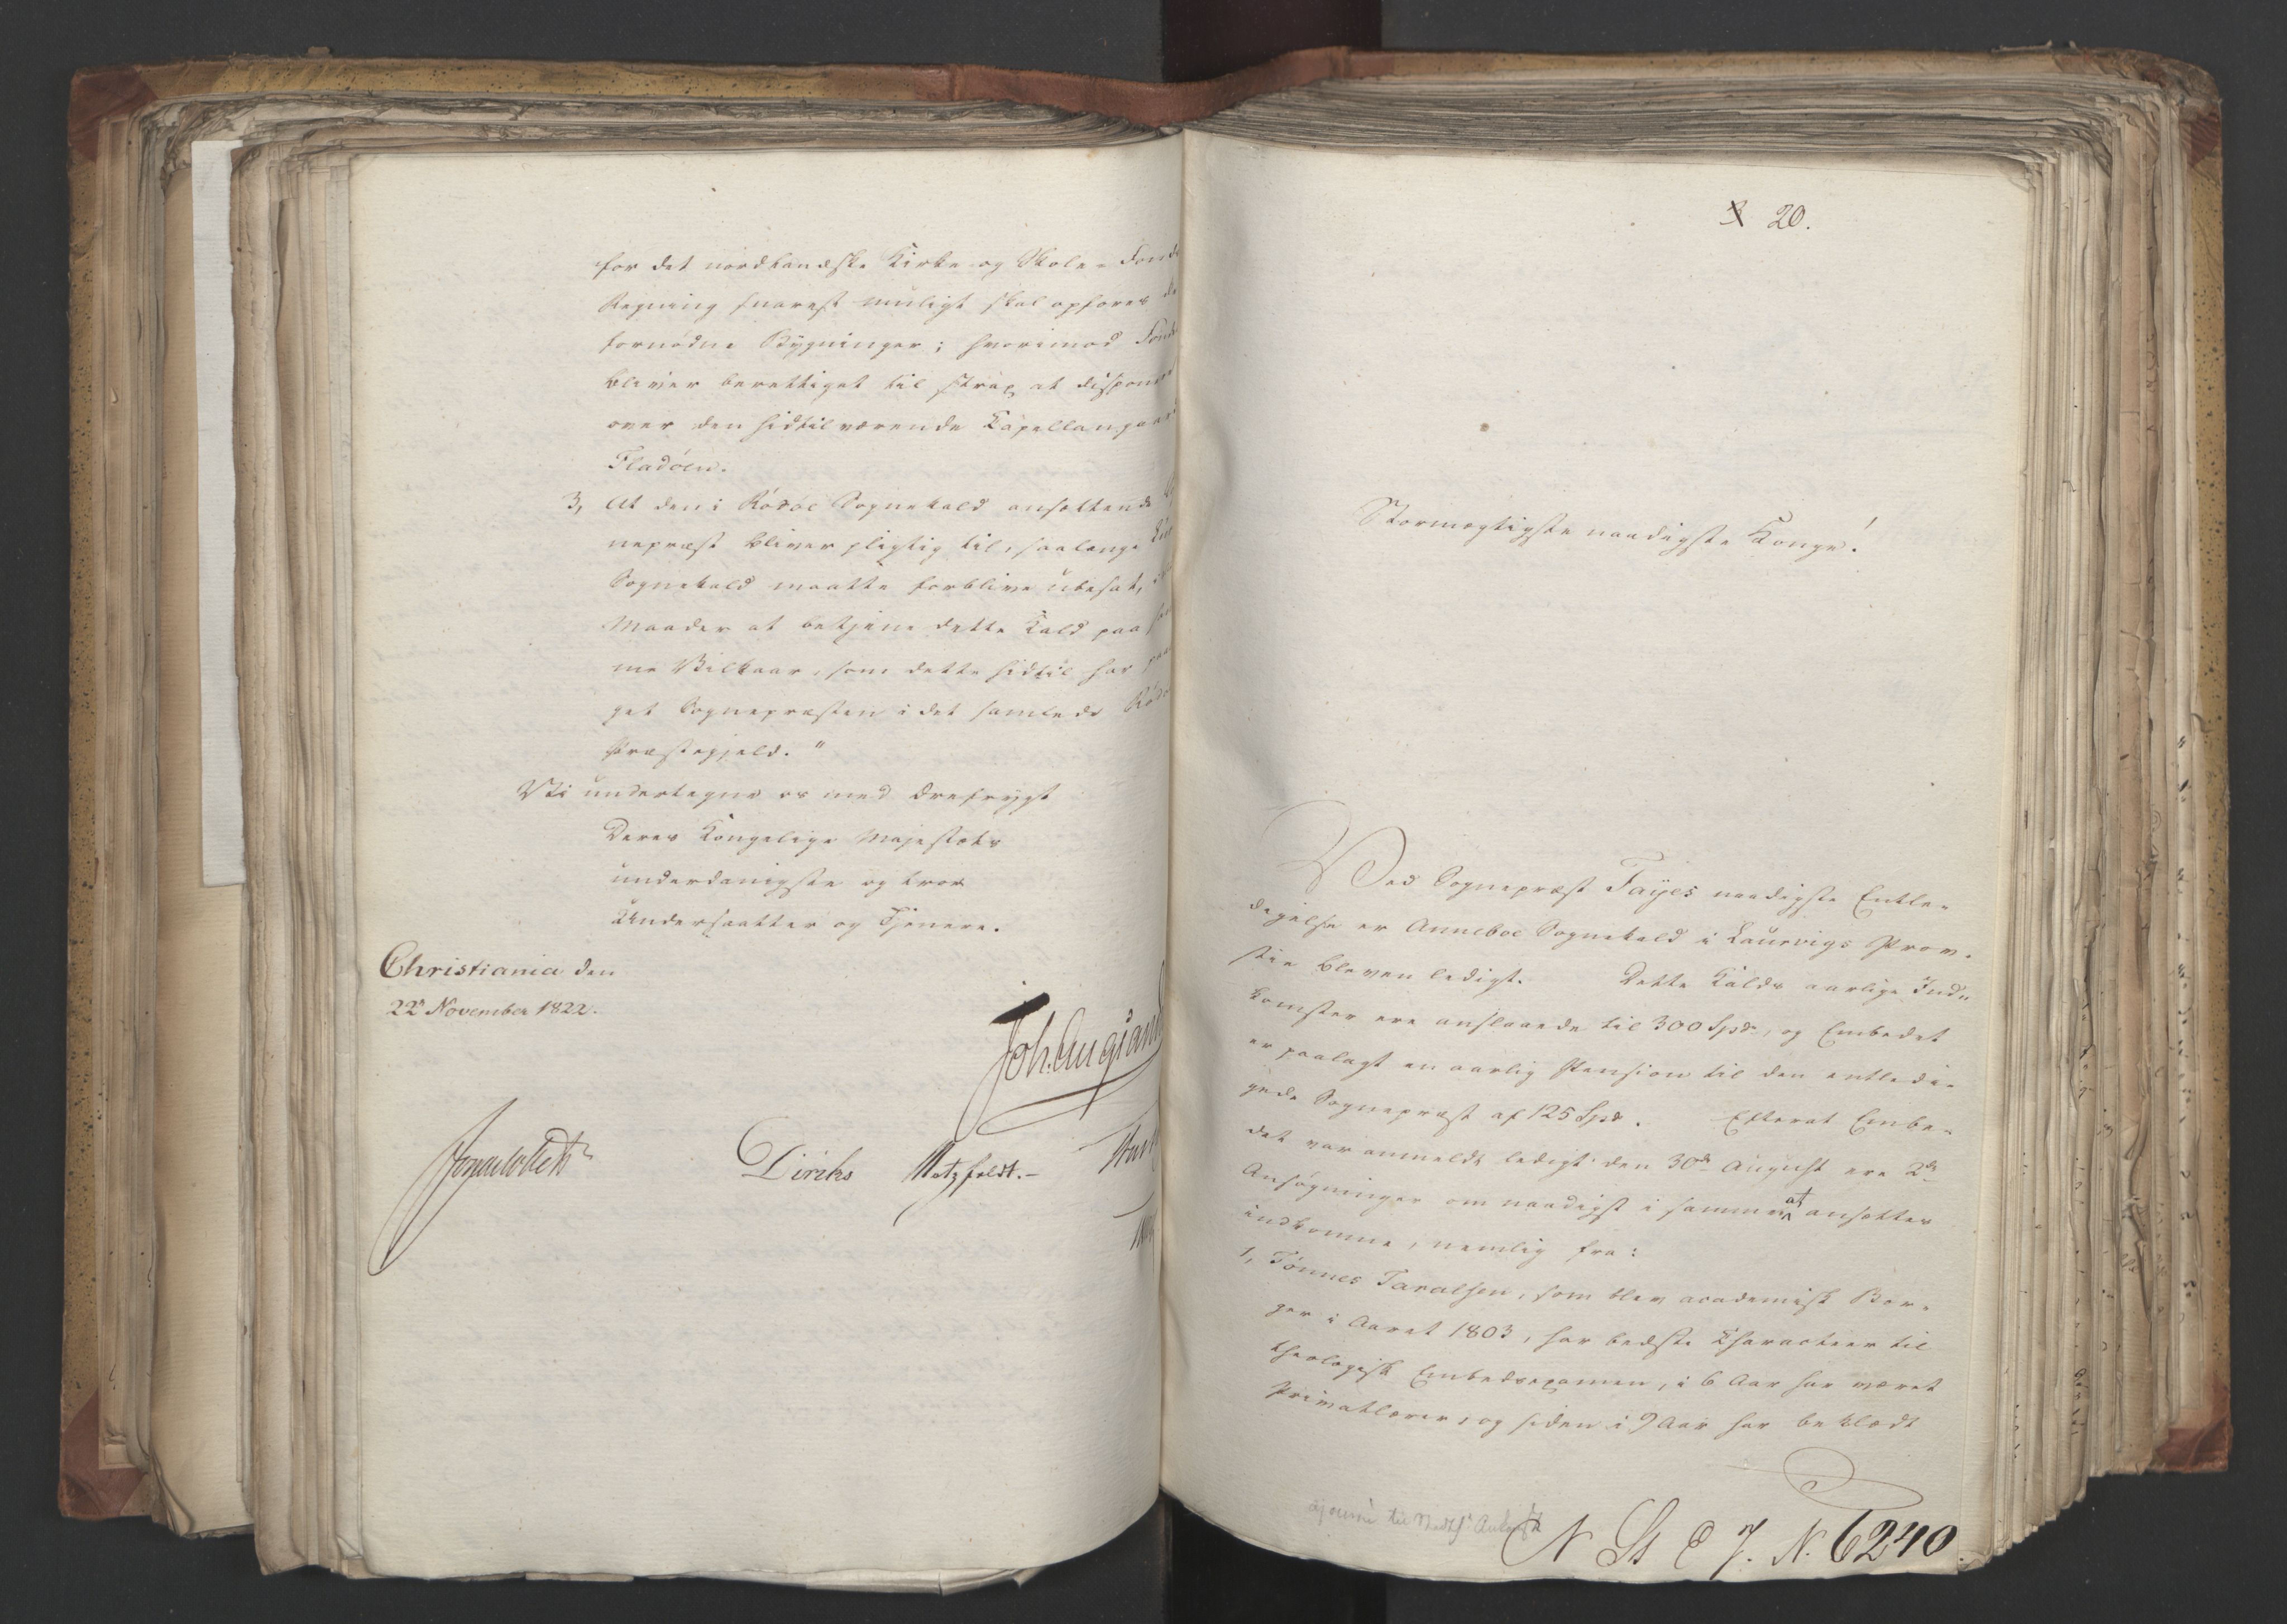 for det nordlandske Kirke- og Skole-Fonds
Regning snarest muligt skal opføres de
fornødne Bygninger; hvorimod Fondet
bliver berettiget til strax at disponere
over den hidtilværende Capellangaard
Fladöen.
3, At den i Rödöe Sognekald ansættende
nepræst bliver pligtig til, saalænge
Sognekald maatte forblive ubesat,
Maader at betjene dette Kald paa
me Vilkaar, som dette hidtil har
get Sognepræsten i det samlede Rödö
Præstegjeld."
Vi undertegne os med Ærefrygt
Deres Kongelige Majestæts
underdanigste og troe
Undersaatter og Tjenere.
Christiania den
22 November 1822.
Joh. Aug. Sand
Sommerfeldt
Diriks Motzfeldt.
20.
Stormægtigste naadigste Konge!
Ved Sognepræst Fayes naadigste Entle-
digelse er Anneboe Sognekald i Laurvigs Prov-
stie bleven ledigt. Dette Kalds aarlige Ind-
komster ere anslaaede til 300 Spd, og Embedet
er paalagt en aarlig Pension til den entledi-
gede Sognepræst af 125 Spd. Efterat Embe-
det var anmeldt ledigt den 30de August ere 2de
Ansøgninger om naadigst i samme at ansættes
indkomne, nemlig fra:
1, Tönnes Taralsen, som blev academisk Bor-
ger i Aaret 1803, har bedste Charakteer til
theologisk Embedsexamen, i 6 Aar har været
Privatlærer, og siden i 9 Aar har beklædt
N St E J. N. 6240.